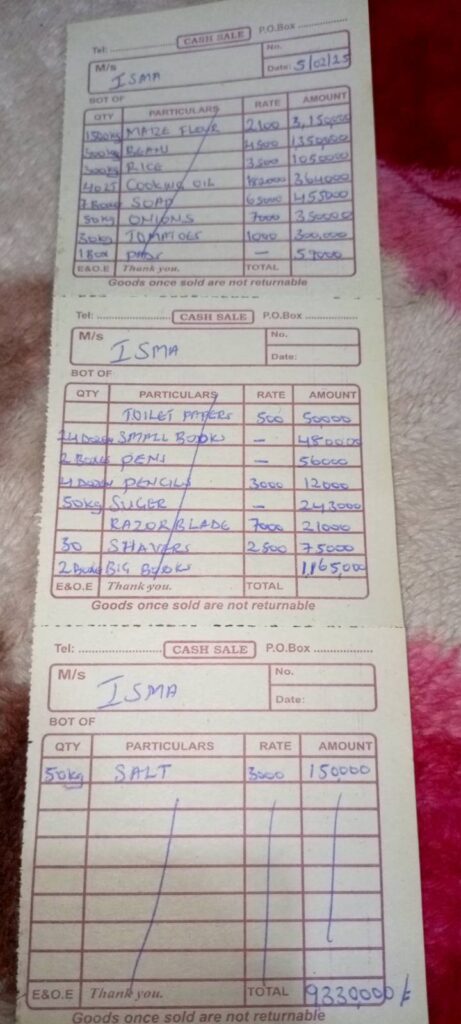 Tel: .................... CASH SALE P.O.Box ................
M/s ISMA No.
Date: 5/02/25
BOT OF
QTY PARTICULARS RATE AMOUNT
1500kg MAIZE FLOUR 2100 3,150,000
300kg BEAN 4500 1350000
300kg RICE 3500 1050000
40LT COOKING OIL 182000 364000
7 Boxes SOAP 65000 455000
50kg ONIONS 7000 350000
30kg TOMATOES 1000 300,000
1 Box — 57000
E&O.E Thank you. TOTAL
Goods once sold are not returnable
Tel: .................... CASH SALE P.O.Box ................
M/s ISMA No.
Date:
BOT OF
QTY PARTICULARS RATE AMOUNT
TOILET PAPERS 500 50000
24 Dozen SMALL BOOKS — 480000
2 Boxes PENS — 56000
4 Dozen PENCILS 3000 12000
50kg SUGER — 243000
RAZOR BLADE 7000 21000
30 SHAVERS 2500 75000
2 Boxes BIG BOOKS 1,165,000
E&O.E Thank you. TOTAL
Goods once sold are not returnable
Tel: .................... CASH SALE P.O.Box ................
M/s ISMA No.
Date:
BOT OF
QTY PARTICULARS RATE AMOUNT
50kg SALT 3000 150000
E&O.E Thank you. TOTAL 9330,000/=
Goods once sold are not returnable